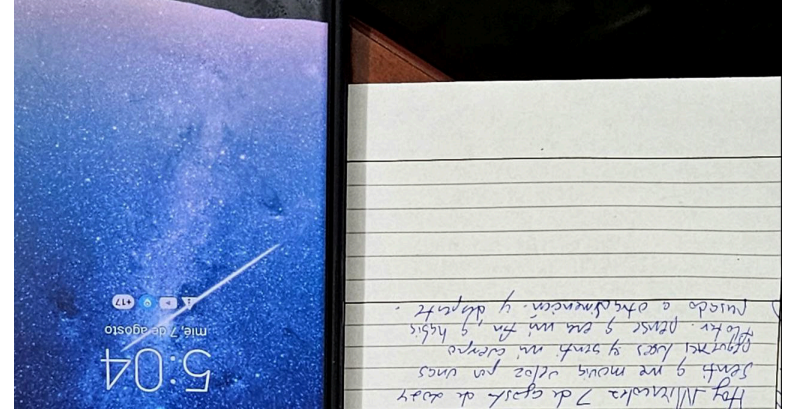 5:04
mié, 7 de agosto
+17
Hoy Miercoles 7 de agosto de 2024
Senti q me movia veloz por unas
pequeñas luces y senti mi cuerpo
flotar. pense q era mi fin q habia
pasado a otra dimencion. y desperte.